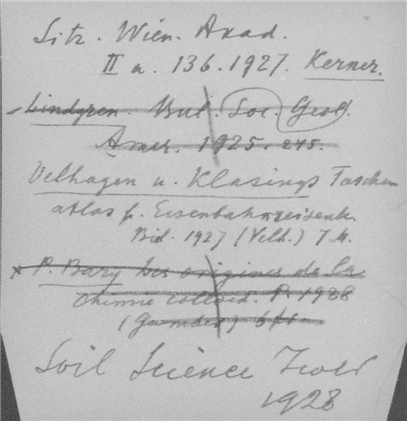 Sitz. Wien. Akad.
II a. 136. 1927. Kerner.
Lindgren. Bul. Soc. Geol.
Amer. 1925. 245.
Velhagen u. Klasings Taschen
atlas f. Eisenbahnreisende.
Bid. 1927 (Velh.) 7 M.
x P. Bary Les origines de la
chimie colloid. P. 1928
Soil Science
1928